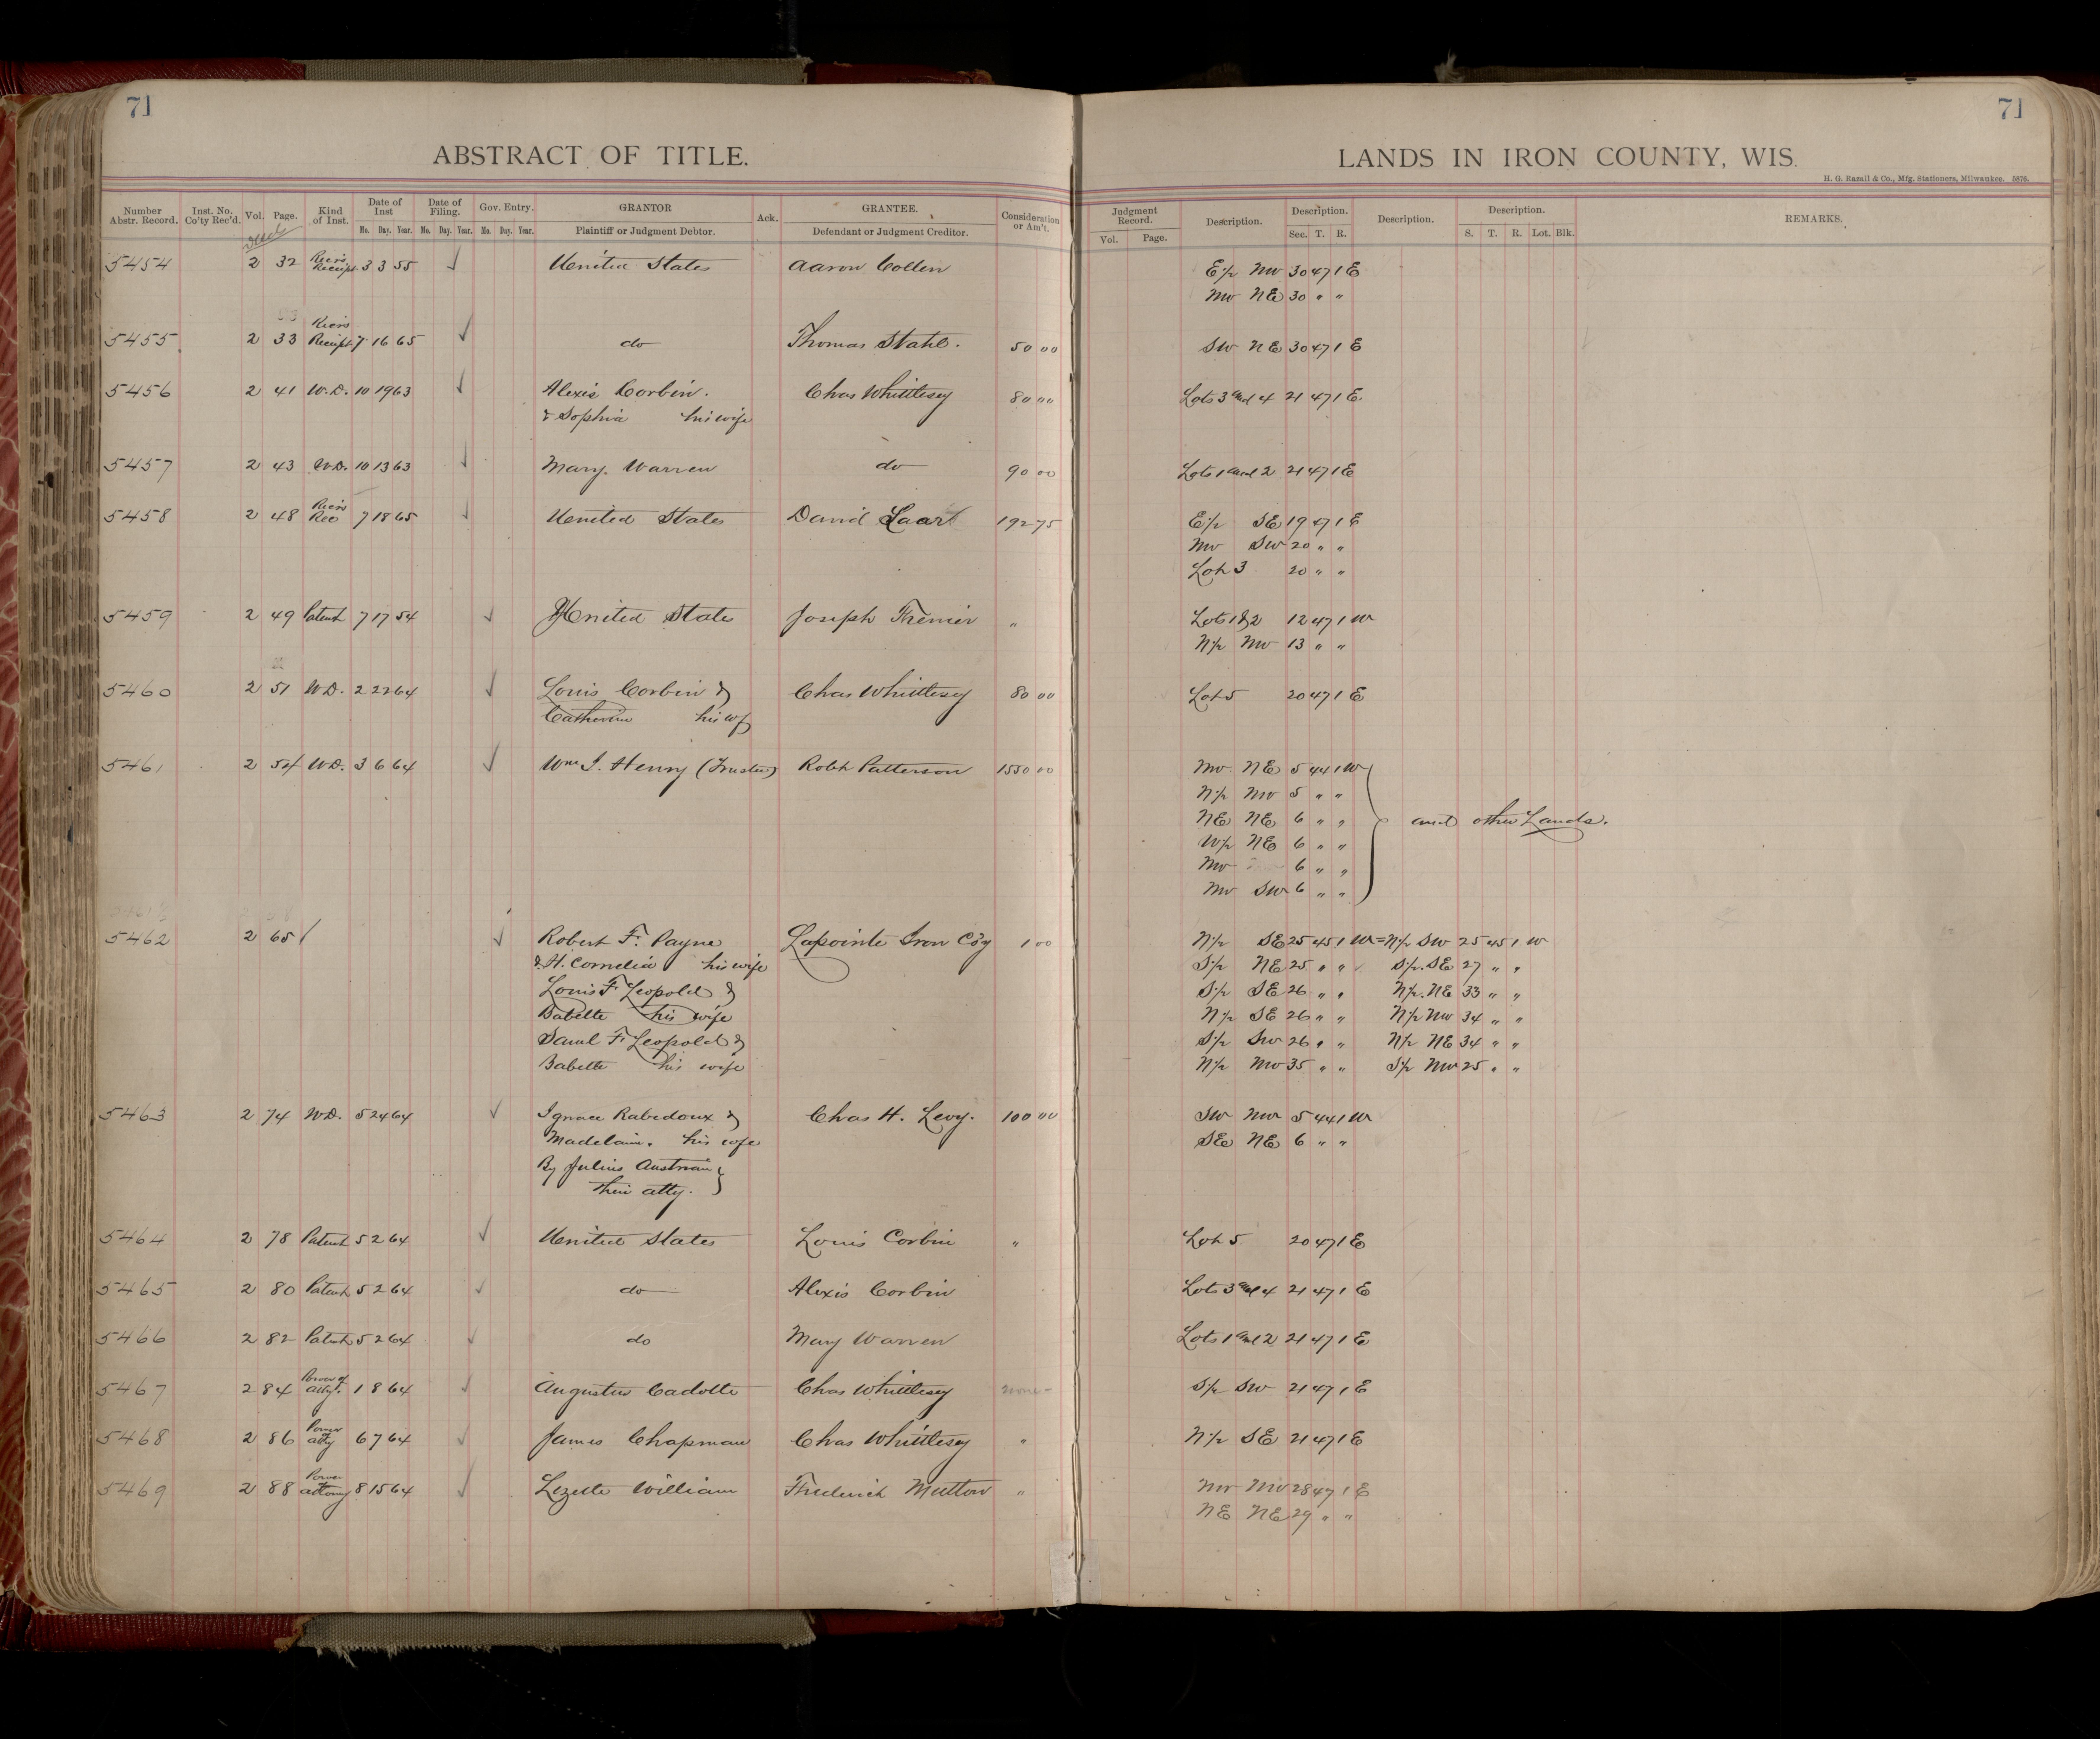 71
71
ABSTRACT OF TITLE.
LANDS IN IRON COUNTY, WIS.
H. G. Razall & Co., Mfg. Stationers, Milwaukee. 5876.
Number Abstr. Record. Inst. No. Co'ty Rec'd. Vol. Page. Kind of Inst. Date of Inst Mo. Day. Year. Date of Filing. Mo. Day. Year. Gov. Entry. Mo. Day. Year. GRANTOR Plaintiff or Judgment Debtor. Ack. GRANTEE. Defendant or Judgment Creditor. Consideration or Am't. Judgment Record. Vol. Page. Description. Description. Sec. T. R. Description. Description. S. T. R. Lot. Blk. REMARKS.
5454 2 32 Rec'rs Receipt 3 3 55 ✓ United States Aaron Collen E½ NW 30 47 1 E
NW NE 30 " "
5455 2 33 Rec'rs Receipt 7 16 65 ✓ do Thomas Stahl. 50 00 SW NE 30 47 1 E
5456 2 41 W.D. 10 19 63 ✓ Alexis Corbin. Chas Whittlesey 80 00 Lots 3 and 4 21 47 1 E.
& Sophia his wife
5457 2 43 W.D. 10 13 63 ✓ Mary Warren do 90 00 Lots 1 and 2 21 47 1 E
5458 2 48 Rec'rs Rec 7 18 65 ✓ United States David 192 75 E½ SE 19 47 1 E
NW SW 20 " "
Lot 3 20 " "
5459 2 49 Patent 7 17 54 ✓ United States Joseph Trenier " Lots 1 & 2 12 47 1 W
N½ NW 13 " "
5460 2 51 W.D. 2 22 64 ✓ Louis Corbin & Chas Whittlesey 80 00 Lot 5 20 47 1 E
Catherine his wf
5461 2 54 W.D. 3 6 64 ✓ Wm J. Henry (Trustee) Robt Patterson 1550 00 NW NE 5 44 1 W
N½ NW 5 " "
NE NE 6 " " and other Lands.
W½ NE 6 " "
NW 6 " "
NW SW 6 " "
5462 2 65 ✓ Robert F. Payne Lapointe Iron Co'y 1 00 N½ SE 25 45 1 W = N½ SW 25 45 1 W
& H. Cornelia his wife S½ NE 25 " " S½ SE 27 " "
Louis F Leopold & S½ SE 26 " " N½ NE 33 " "
Babette his wife N½ SE 26 " " N½ NW 34 " "
Saml F. Leopold & S½ SW 26 " " N½ NE 34 " "
Babette his wife N½ NW 35 " " S½ NW 25 " "
5463 2 74 W.D. 5 24 64 ✓ Ignace Rabedoux & Chas H. Levy. 100 00 SW NW 5 44 1 W
Madelain. his wife SE NE 6 " "
By Julius Austrian
their atty.
5464 2 78 Patent 5 2 64 ✓ United States Louis Corbin " Lot 5 20 47 1 E
5465 2 80 Patent 5 2 64 ✓ do Alexis Corbin Lots 3 and 4 21 47 1 E
5466 2 82 Patent 5 2 64 ✓ do Mary Warren Lots 1 and 2 21 47 1 E
5467 2 84 Power of atty. 1 8 64 ✓ Augustus Cadotte Chas Whittlesey none S½ SW 21 47 1 E
5468 2 86 Power atty 6 7 64 ✓ James Chapman Chas Whittlesey " N½ SE 21 47 1 E
5469 2 88 Power attorney 8 15 64 ✓ Lizette William Frederick Mutton " NW NW 28 47 1 E
NE NE 29 " "